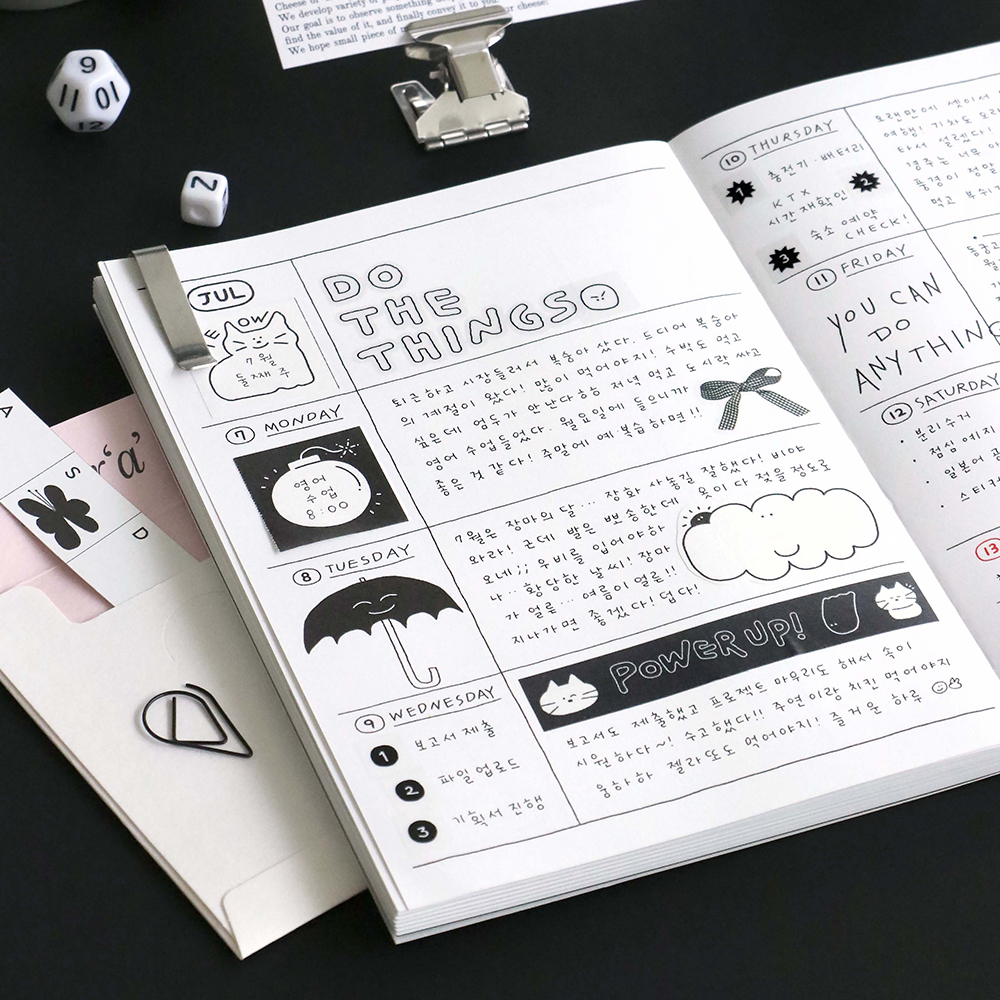 Cheese of
We develop variety of p
Our goal is to observe something de
find the value of it, and finally convey it to you
our cheese:
We hope small piece of
9
11
10
12
2
A
S
D
'a'
JUL
MEOW
7월
둘째 주
DO
THE
THINGS
퇴근하고 시장들러서 복숭아 샀다. 드디어 복숭아
의 계절이 왔다! 많이 먹어야지! 수박도 먹고
싶은데 엄두가 안난다하핳 저녁 먹고 도시락 싸고
영어 수업들었다. 월요일에 들으니까
좋은 것 같다! 주말에 예·복습하면!!
7 MONDAY
영어
수업
8:00
7월은 장마의 달... 장화 사놓길 잘했다! 비야
와라! 근데 발은 뽀송한데 옷이 다 젖을 정도로
오네;; 우비를 입어야하
나... 황당한 날씨! 장마
가 얼른... 여름이 얼른!!
지나가면 좋겠다! 덥다!
8 TUESDAY
POWER UP!
보고서도 제출했고 프로젝트 마무리도 해서 속이
시원하다~! 수고했다!! 주연이랑 치킨 먹어야지
웅하하 젤라또도 먹어야지! 즐거운 하루
9 WEDNESDAY
1 보고서 제출
2 파일 업로드
3 기획서 진행
10 THURSDAY
1 충전기·배터리
2
KTX
시간 재확인
3 숙소 예약
CHECK!
오랜만에 셋이서
여행! 기차도 오랜
타서 설렜다!
경주는 너무 아
풍경이 정말
먹고 부
11 FRIDAY
YOU CAN
DO
ANYTHING
동궁과
12 SATURDAY
· 분리수거
· 점심 예지
· 일본어 공
· 스티커
13